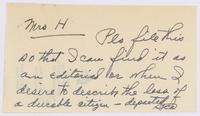 Mrs H
Pls file this
so that I can find it as
an editorial or when I
desire to describe the loss of
a durable citizen - departed